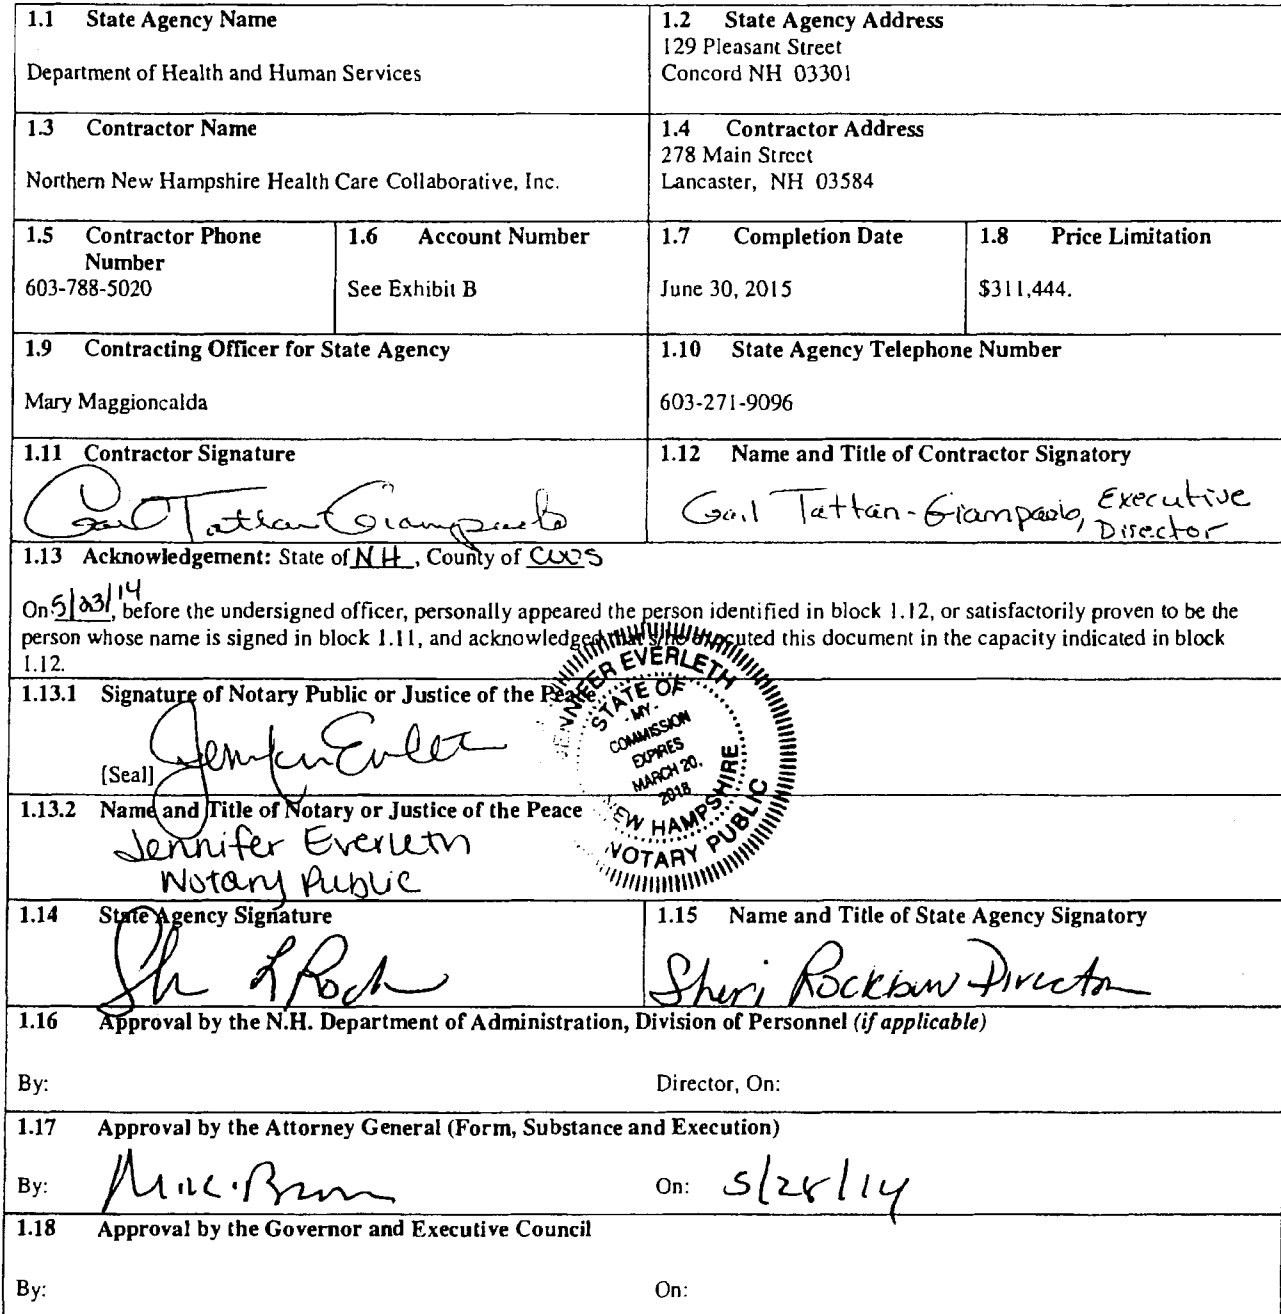 1.1 State Agency Name
Department of Health and Human Services
1.2 State Agency Address
129 Pleasant Street
Concord NH 03301
1.3 Contractor Name
Northern New Hampshire Health Care Collaborative, Inc.
1.4 Contractor Address
278 Main Street
Lancaster, NH 03584
1.5 Contractor Phone
Number
603-788-5020
1.6 Account Number
See Exhibit B
1.7 Completion Date
June 30, 2015
1.8 Price Limitation
$311,444.
1.9 Contracting Officer for State Agency
Mary Maggioncalda
1.10 State Agency Telephone Number
603-271-9096
1.11 Contractor Signature
Gail Tattan Giampaolo
1.12 Name and Title of Contractor Signatory
Gail Tattan-Giampaolo, Executive
Director
1.13 Acknowledgement: State of NH, County of COOS
On 5/23/14, before the undersigned officer, personally appeared the person identified in block 1.12, or satisfactorily proven to be the
person whose name is signed in block 1.11, and acknowledged that s/he executed this document in the capacity indicated in block
1.12.
1.13.1 Signature of Notary Public or Justice of the Peace
[Seal]
JENNIFER EVERLETH
STATE OF
- MY -
COMMISSION
EXPIRES
MARCH 20,
2018
NEW HAMPSHIRE
NOTARY PUBLIC
1.13.2 Name and Title of Notary or Justice of the Peace
Jennifer Everleth
Notary Public
1.14 State Agency Signature
1.15 Name and Title of State Agency Signatory
Sheri Rockburn Director
1.16 Approval by the N.H. Department of Administration, Division of Personnel (if applicable)
By:
Director, On:
1.17 Approval by the Attorney General (Form, Substance and Execution)
By:
On: 5/28/14
1.18 Approval by the Governor and Executive Council
By:
On: